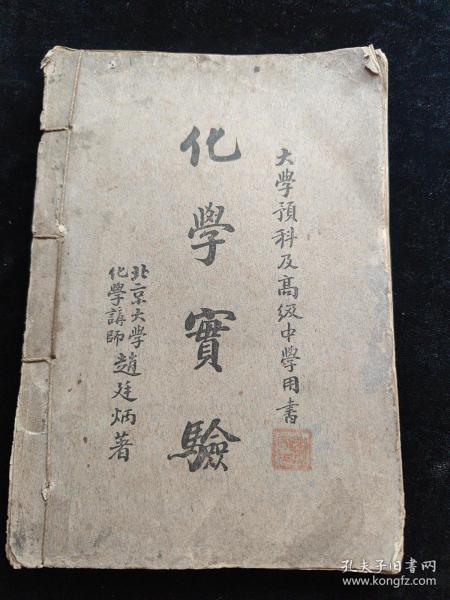 大學預科及高級中學用書
化學實驗
北京大學
化學講師
趙廷炳著
孔夫子旧书网
www.kongfz.com